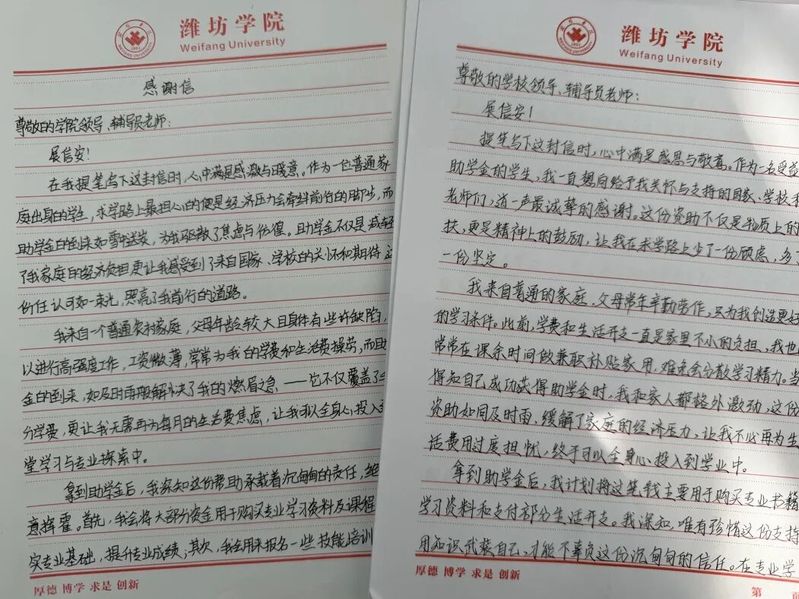 潍坊学院
Weifang University
感谢信
尊敬的学院领导、辅导员老师：
展信安！
在我提笔写下这封信时，心中满是感激与暖意。作为一位普通家
庭出身的学生，求学路上最担心的便是经济压力会牵绊前行的脚步，而
助学金的到来如雪中送炭，为我驱散了焦虑与彷徨。助学金不仅是减轻
了我家庭的经济负担更让我感受到了来自国家、学校的关怀和期待
份信任认可如一束光，照亮了我前行的道路。
我来自一个普通农村家庭，父母年龄较大且身体有些许缺陷，
以进行高强度工作，工资微薄，常常为我的学费和生活费操劳，而助
金的到来，如及时雨般解决了我的燃眉之急，——它不仅覆盖了
分学费，更让我无需再为每月的生活费焦虑，让我可以全身心投入
堂学习与专业探索中。
拿到助学金后，我深知这份帮助承载着沉甸甸的责任，绝
意挥霍。首先，我会将大部分资金用于购买专业学习资料及课程
实专业基础，提升专业成绩；其次，我会用来报名一些技能培训
厚德 博学 求是 创新
潍坊学院
Weifang University
尊敬的学校领导、辅导员老师：
展信安！
提笔写下这封信时，心中满是感恩与敬意。作为一名受
助学金的学生，我一直想向给予我关怀与支持的国家、学校
老师们，道一声最诚挚的感谢。这份资助不仅是物质上的
扶，更是精神上的鼓励，让我在求学路上少了一份顾虑，多
一份坚定。
我来自普通的家庭，父母常年辛勤劳作，只为我创造更好
的学习条件。此前，学费和生活开支一直是家里不小的负担，我也
常常在课余时间做兼职补贴家用，难免会分散学习精力。当
得知自己成功获得助学金时，我和家人都格外激动，这份
资助如同及时雨，缓解了家庭的经济压力，让我不必再为生
活费用过度担忧，终于可以全身心投入到学业中。
拿到助学金后，我计划将这笔钱主要用于购买专业书籍
学习资料和支付部分生活开支。我深知，唯有珍惜这份支持
用知识武装自己，才能不辜负这份沉甸甸的信任。在专业学
厚德 博学 求是 创新
第